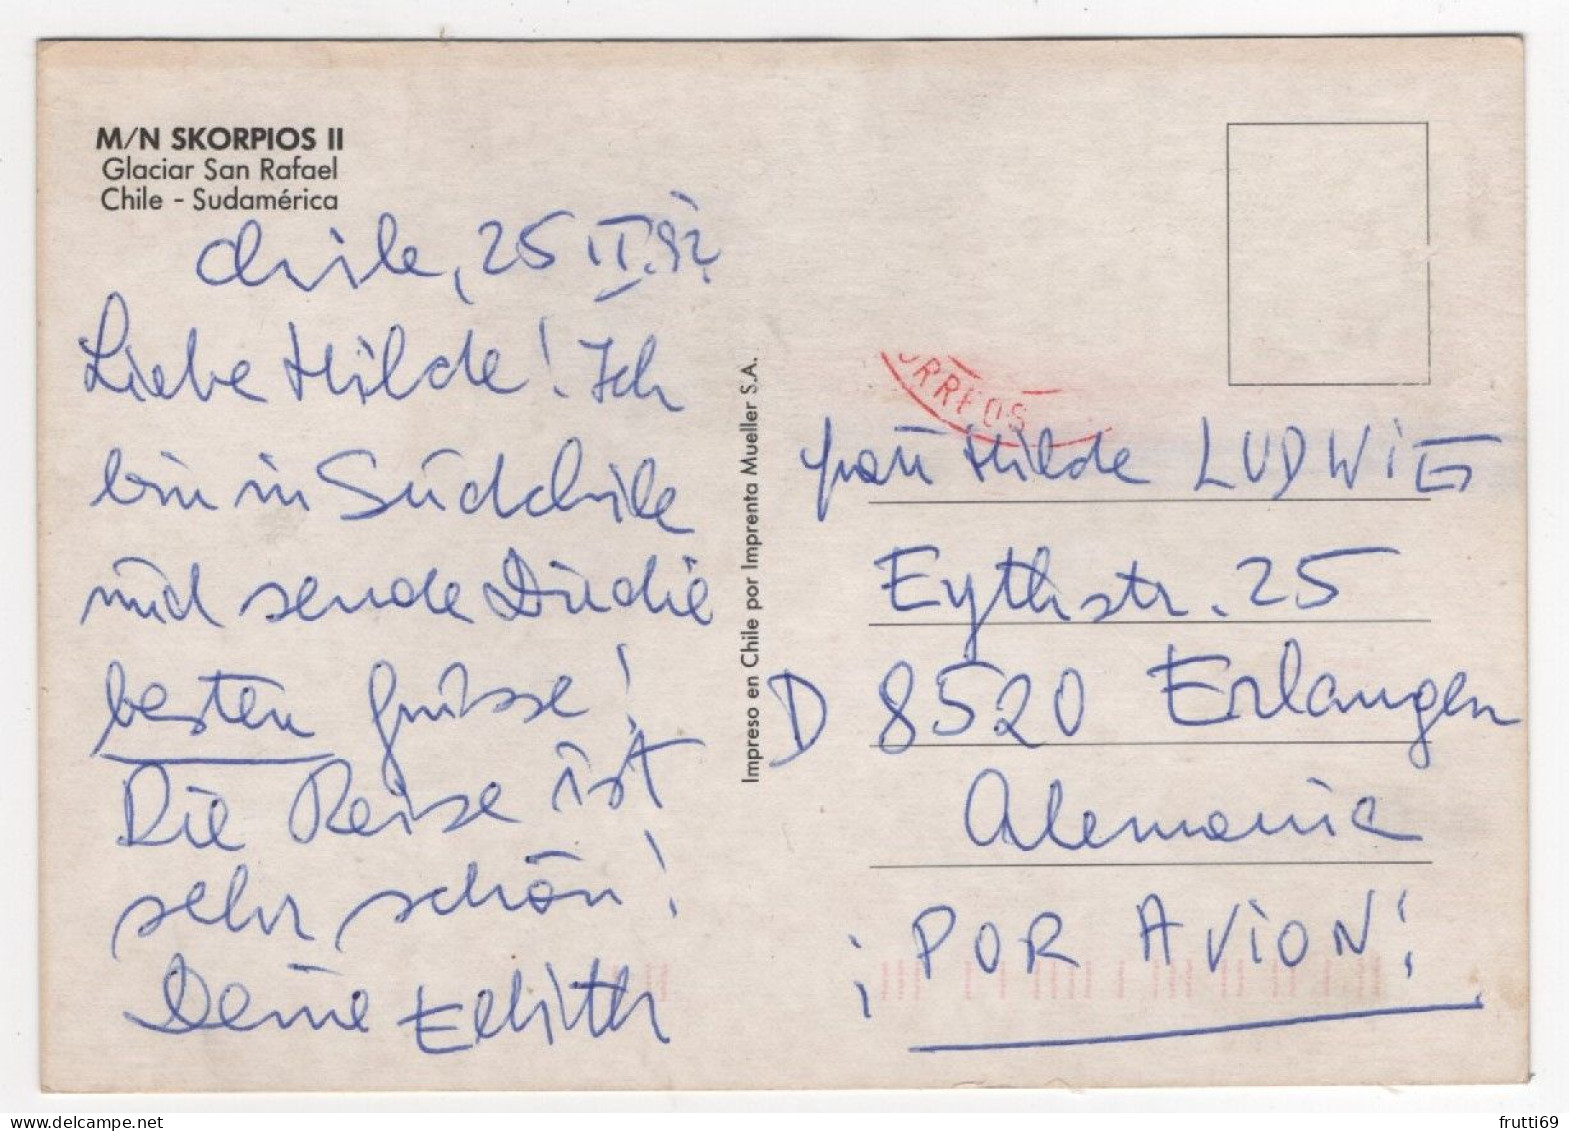 M/N SKORPIOS II
Glaciar San Rafael
Chile - Sudamérica
Chile, 25 II. 92.
Liebe Hilde! Ich
bin in Südchile
und sende Dir die
besten Grüsse!
Die Reise ist
sehr schön!
Deine Edith
Impreso en Chile por Imprenta Mueller S.A.
ORREOS
Frau Hilde LUDWIG
Eythstr. 25
D 8520 Erlangen
Alemania
¡POR AVION!
www.delcampe.net
frutti69